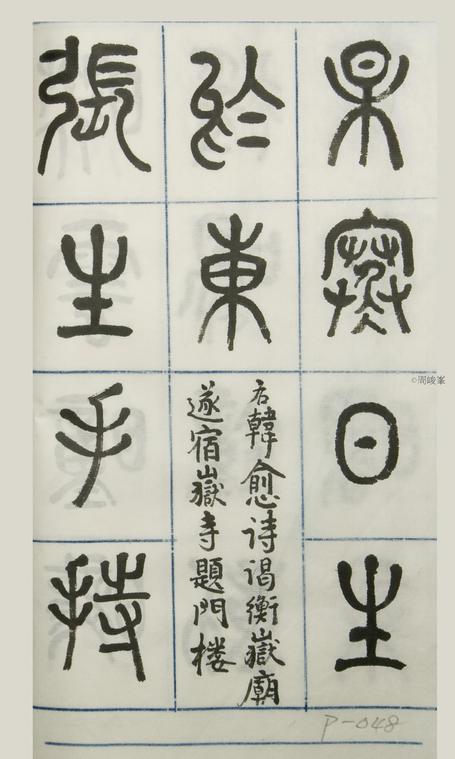 杲寒日生
於東
右韓愈诗谒衡嶽廟
遂宿嶽寺題門楼
張生手持
©周峻峯
P-048